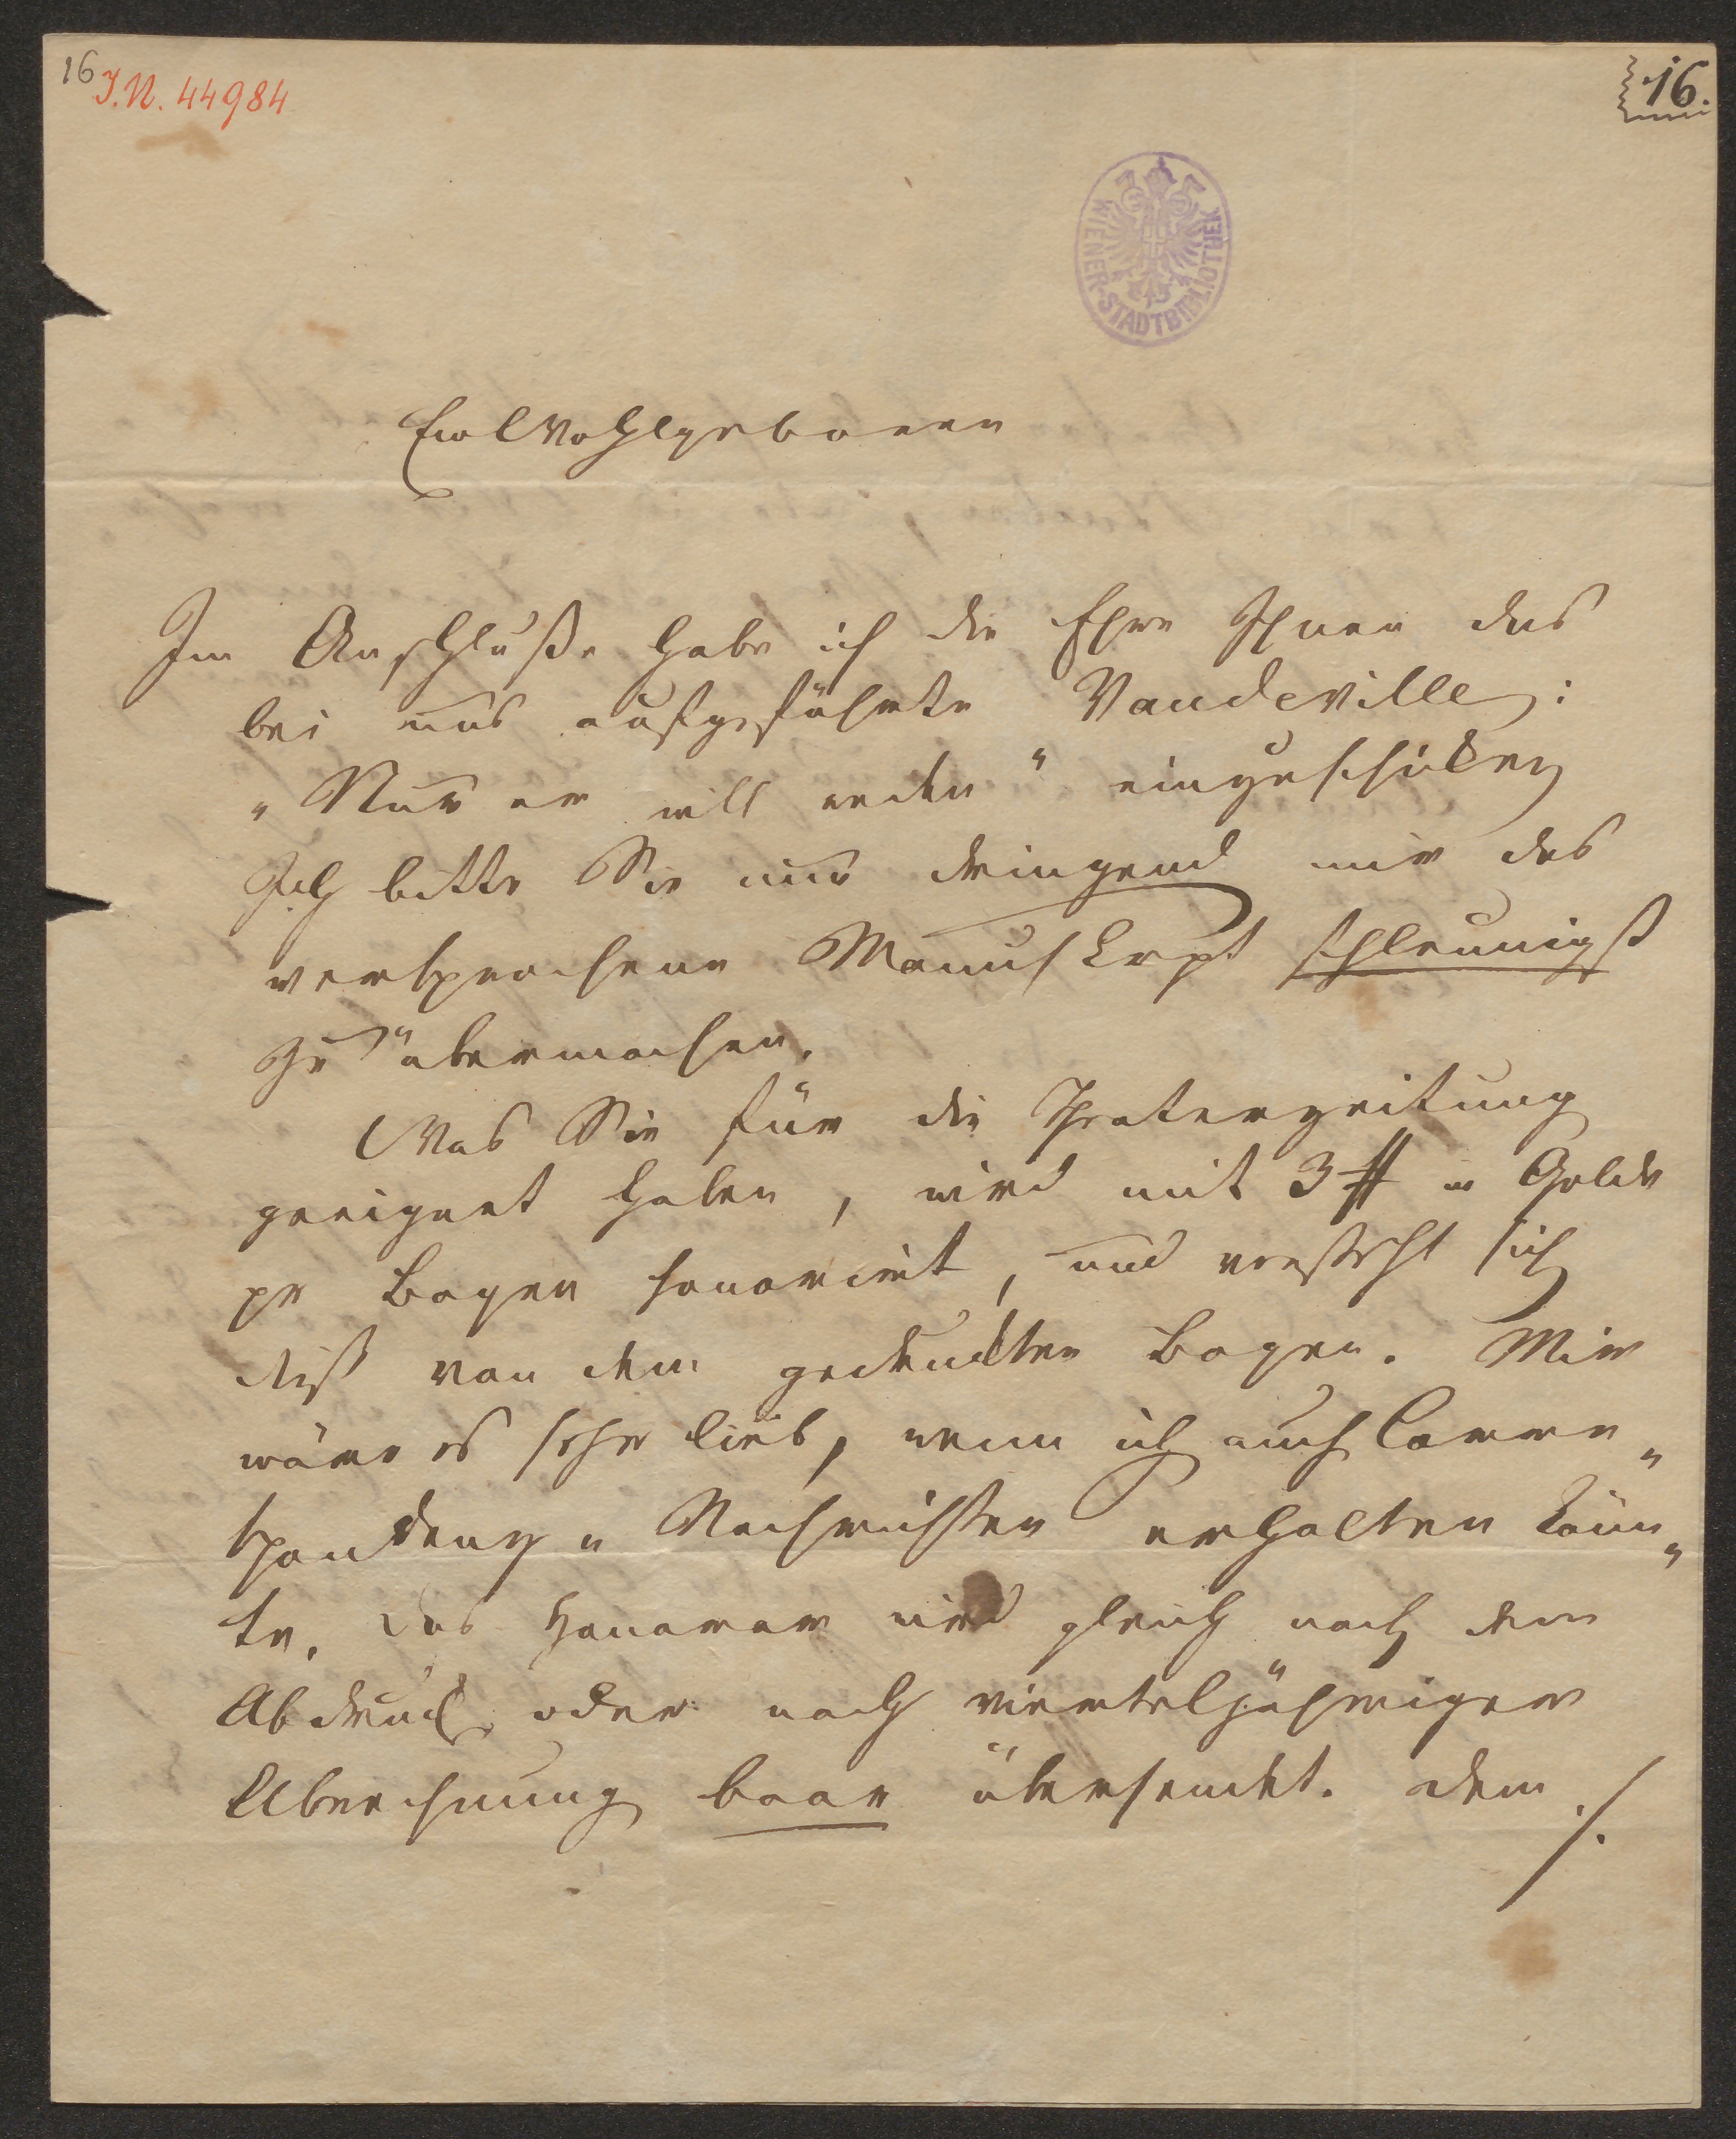 16 I.N. 44984
16.
WIENER-STADTBIBLIOTHEK
Euer Wohlgeboren
Im Anschluße habe ich die Ehre Ihnen das
bei uns aufgeführte Vaudeville:
„Nur er will reden" einzuschicken
Ich bitte Sie nur dringend mir das
versprochene Manuskrpt schleunigst
zu übermachen.
Was Sie für die Theaterzeitung
geeignet haben, wird mit 3 # in Golde
pr Bogen honorirt, und versteht sich
diß von dem gedruckten Bogen. Mir
wäre es sehr lieb, wenn ich auch Corre„
spondenz u Nachrichten erhalten könn„
te. Das Honorar wird gleich nach dem
Abdruck oder nach vierteljähriger
Abrechnung baar übersendet. dem
./.